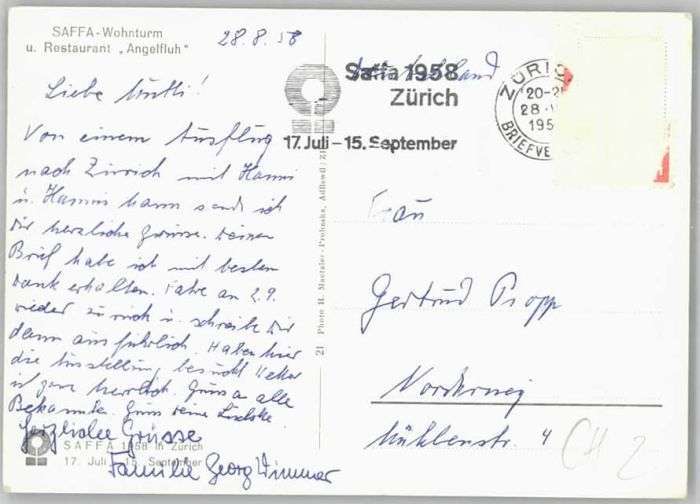 SAFFA-Wohnturm
u. Restaurant „Angelfluh"
28.8.58
Liebe Mutti!
Von einem Ausflug
nach Zürich mit Hanni
u. Hannis Mann sende ich
Dir herzliche Grüsse. Deinen
Brief habe ich mit besten
Dank erhalten. Fahre am 2.9.
wieder zurück u. schreibe Dir
dann ausführlich. Haben hier
die Ausstellung besucht Wetter
ist ganz herrlich. Gruss a alle
Bekannte. Gruss Deine
Herzliche Grüsse
Familie Georg Wimmer
SAFFA 1958 in Zürich
17. Juli - 15. September
21 Photo H.
Saffa 1958
Zürich
17. Juli – 15. September
Deutschland
ZÜRICH
20-2
28.
195
BRIEFVE
Frau
Gertrud Propp
Norderney
Mühlenstr. 4
CH 2